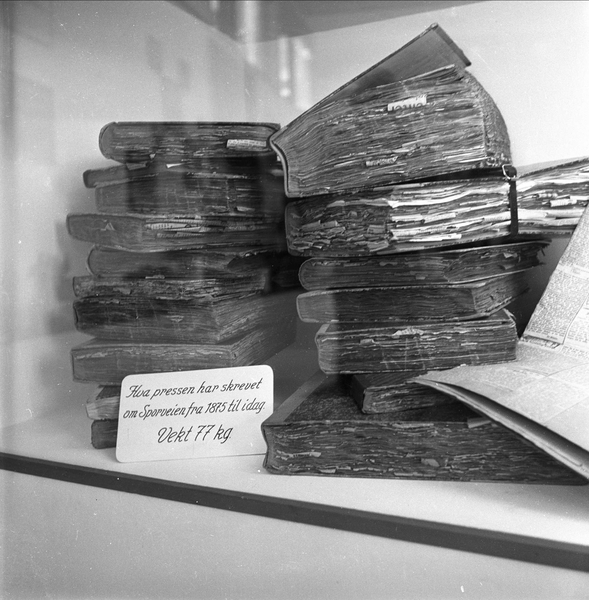 Hva pressen har skrevet
om Sporveien fra 1875 til idag.
Vekt 77 kg